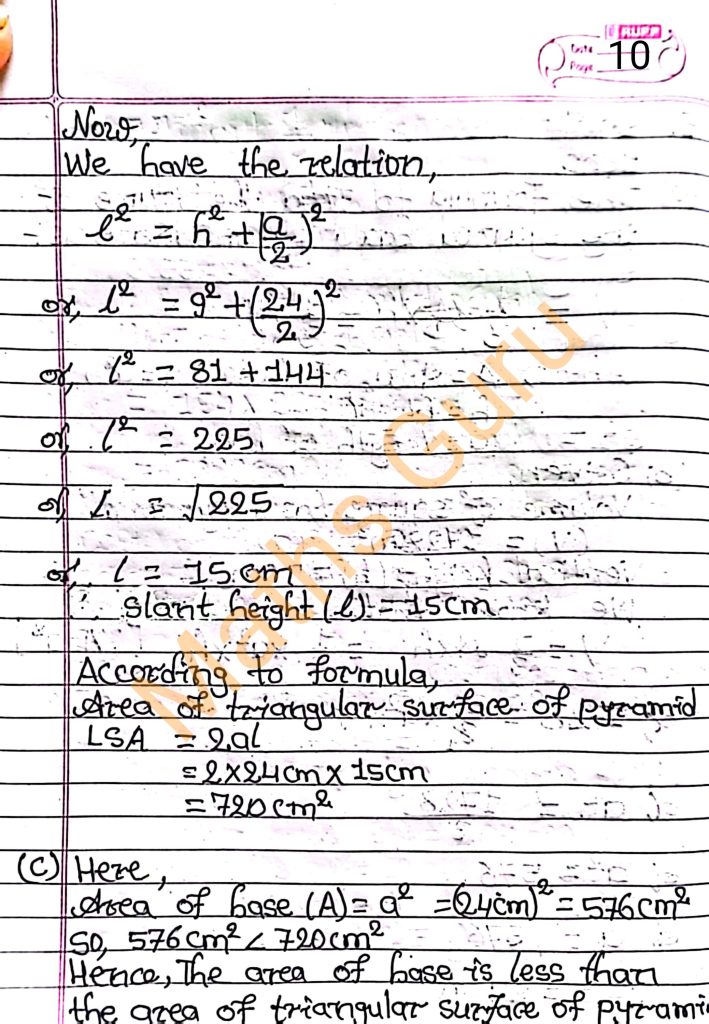 Date
Page 10
Now,
We have the relation,
l² = h² + (a/2)²
or, l² = 9² + (24/2)²
or, l² = 81 + 144
or, l² = 225
or, l = √225
or, l = 15 cm
∴ Slant height (l) = 15cm
According to formula,
Area of triangular surface of pyramid
LSA = 2al
= 2×24cm×15cm
= 720cm²
(C) Here,
Area of base (A) = a² = (24cm)² = 576cm²
So, 576cm² < 720cm²
Hence, The area of base is less than
the area of triangular surface of pyrami
Maths Guru